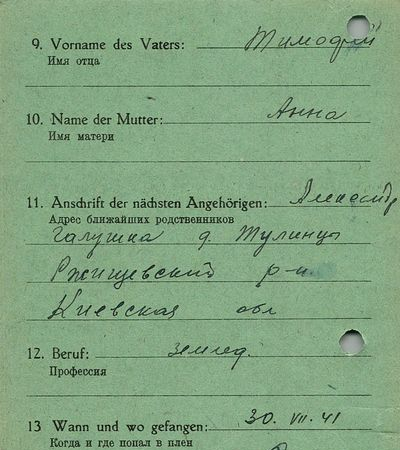 9. Vorname des Vaters: Тимофей
Имя отца
10. Name der Mutter: Анна
Имя матери
11. Anschrift der nächsten Angehörigen: Александр
Адрес ближайших родственников
Галушка д. Тулинцы
Ржищевский р-н.
Киевская обл
12. Beruf: землед.
Профессия
13 Wann und wo gefangen: 30. VII. 41
Когда и где попал в плен